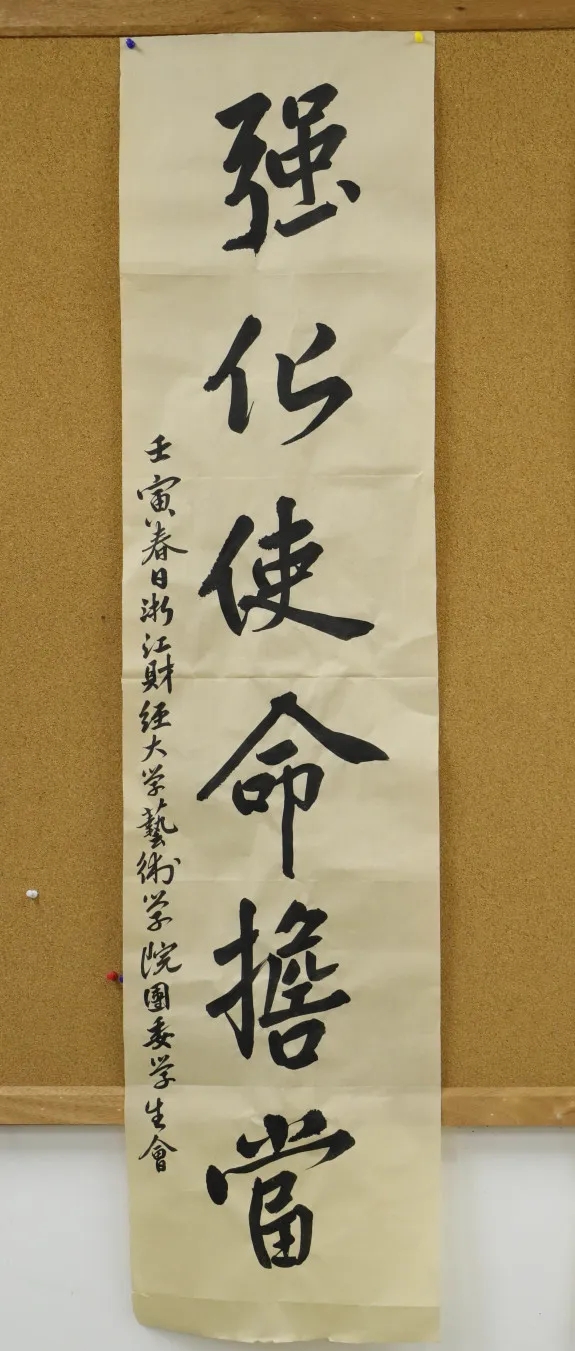 强化使命擔當
壬寅春日浙江財經大学藝術学院團委学生會